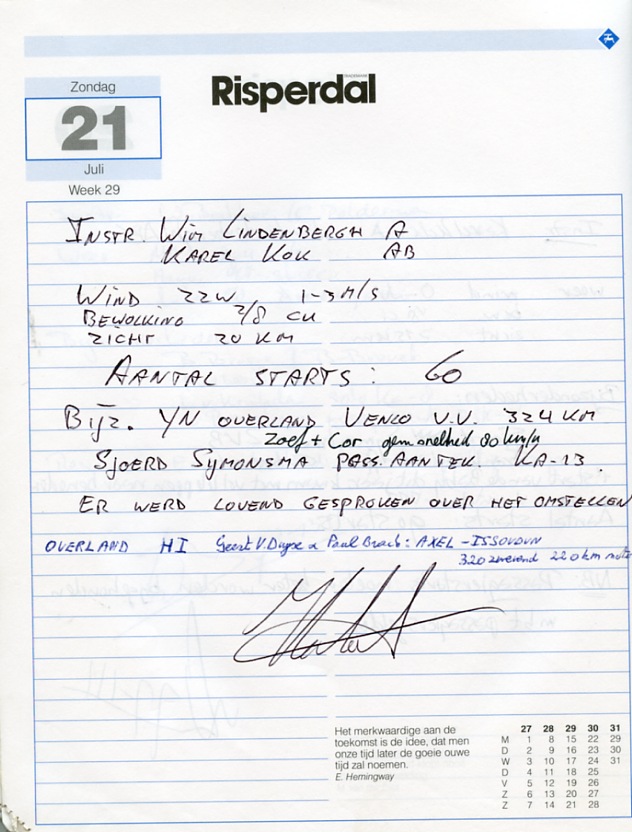 Zondag
21
Juli
Week 29
Risperdal
INSTR. WIM LINDENBERGH A
KAREL KOK AB
WIND ZZW 1-3 M/S
BEWOLKING 2/8 CU
ZICHT 20 KM
AANTAL STARTS: 60
BIJZ. YN OVERLAND VENLO V.V. 324 KM
Zoef + Cor gem snelheid 80 km/u
SJOERD SYMONSMA PASS. AANTEK. KA-13.
ER WERD LOVEND GESPROKEN OVER HET OMSTELLEN
OVERLAND HI Geert V. Duyne & Paul Brach: AXEL - ISSOUDUN
320 zwevend 220 km motor
Het merkwaardige aan de
toekomst is de idee, dat men
onze tijd later de goeie ouwe
tijd zal noemen.
E. Hemingway
27 28 29 30 31
M 1 8 15 22 29
D 2 9 16 23 30
W 3 10 17 24 31
D 4 11 18 25
V 5 12 19 26
Z 6 13 20 27
Z 7 14 21 28